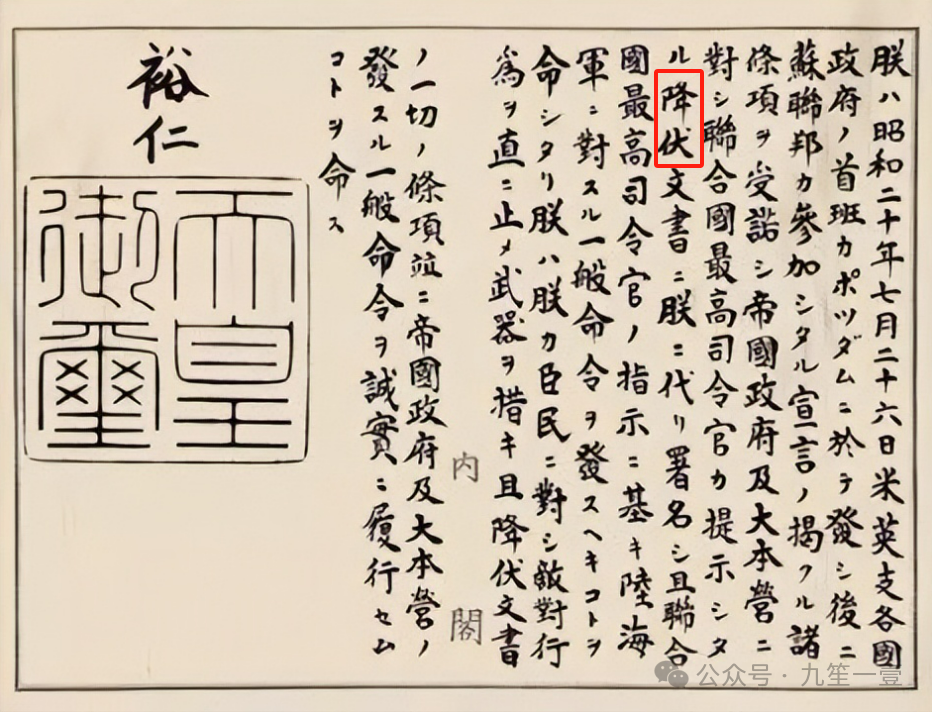 朕ハ昭和二十年七月二十六日米英支各國
政府ノ首班カポツダムニ於テ發シ後ニ
蘇聯邦カ參加シタル宣言ノ掲クル諸
條項ヲ受諾シ帝國政府及大本營ニ
對シ聯合國最高司令官カ提示シタ
ル降伏文書ニ朕ニ代リ署名シ且聯合
國最高司令官ノ指示ニ基キ陸海
軍ニ對スル一般命令ヲ發スヘキコトヲ
命シタリ朕ハ朕カ臣民ニ對シ敵對行
爲ヲ直ニ止メ武器ヲ措キ且降伏文書
内閣
ノ一切ノ條項竝ニ帝國政府及大本營ノ
發スル一般命令ヲ誠實ニ履行セム
コトヲ命ス
裕仁
天皇
御璽
公众号 · 九笙一壹